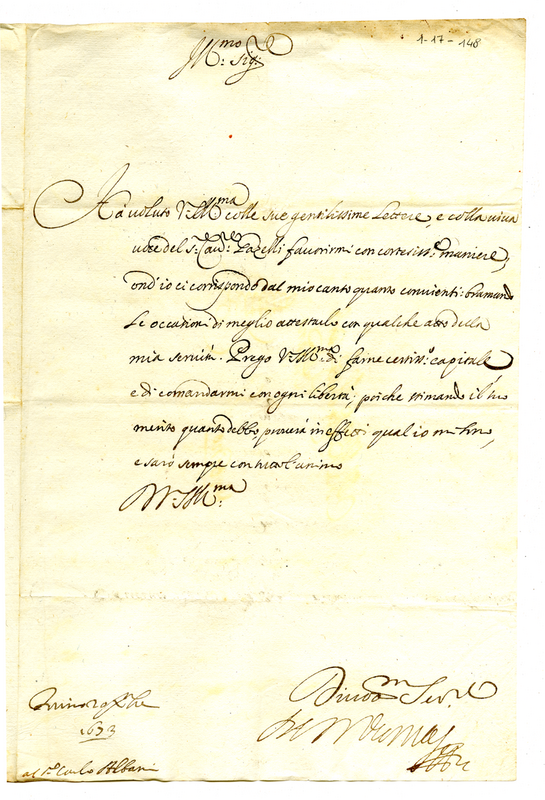 1-17-148
Ill.mo Sig.re
Hà voluto V.S. Ill.ma colle sue gentilissime Lettere, e colla viva
voce del S.r Cav.re favorirmi con cortesiss.e maniere,
ond'io ci corrispondo dal mio canto quanto convienti: bramando
le occasioni di meglio attestarlo con qualche atto della
mia servitù. Prego V.S. Ill.ma di farne certiss.o capitale
e di comandarmi con ogni libertà; poiche stimando il suo
merito quanto debbo, proverà in effetti qual io mi sono,
e sarò sempre con tutto l'animo
Di V.S. Ill.ma
Divotiss.mo Ser.re
1673
al S.r Carlo Albani